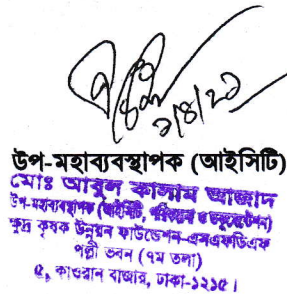 ২/৪/২১
উপ-মহাব্যবস্থাপক (আইসিটি)
মোঃ আবুল কালাম আজাদ
উপ-মহাব্যবস্থাপক (আইসিটি, পরিকল্পনা ও ডকুমেন্টেশন)
ক্ষুদ্র কৃষক উন্নয়ন ফাউন্ডেশন-এসএফডিএফ
পল্লী ভবন (৭ম তলা)
৫, কাওরান বাজার, ঢাকা-১২১৫।